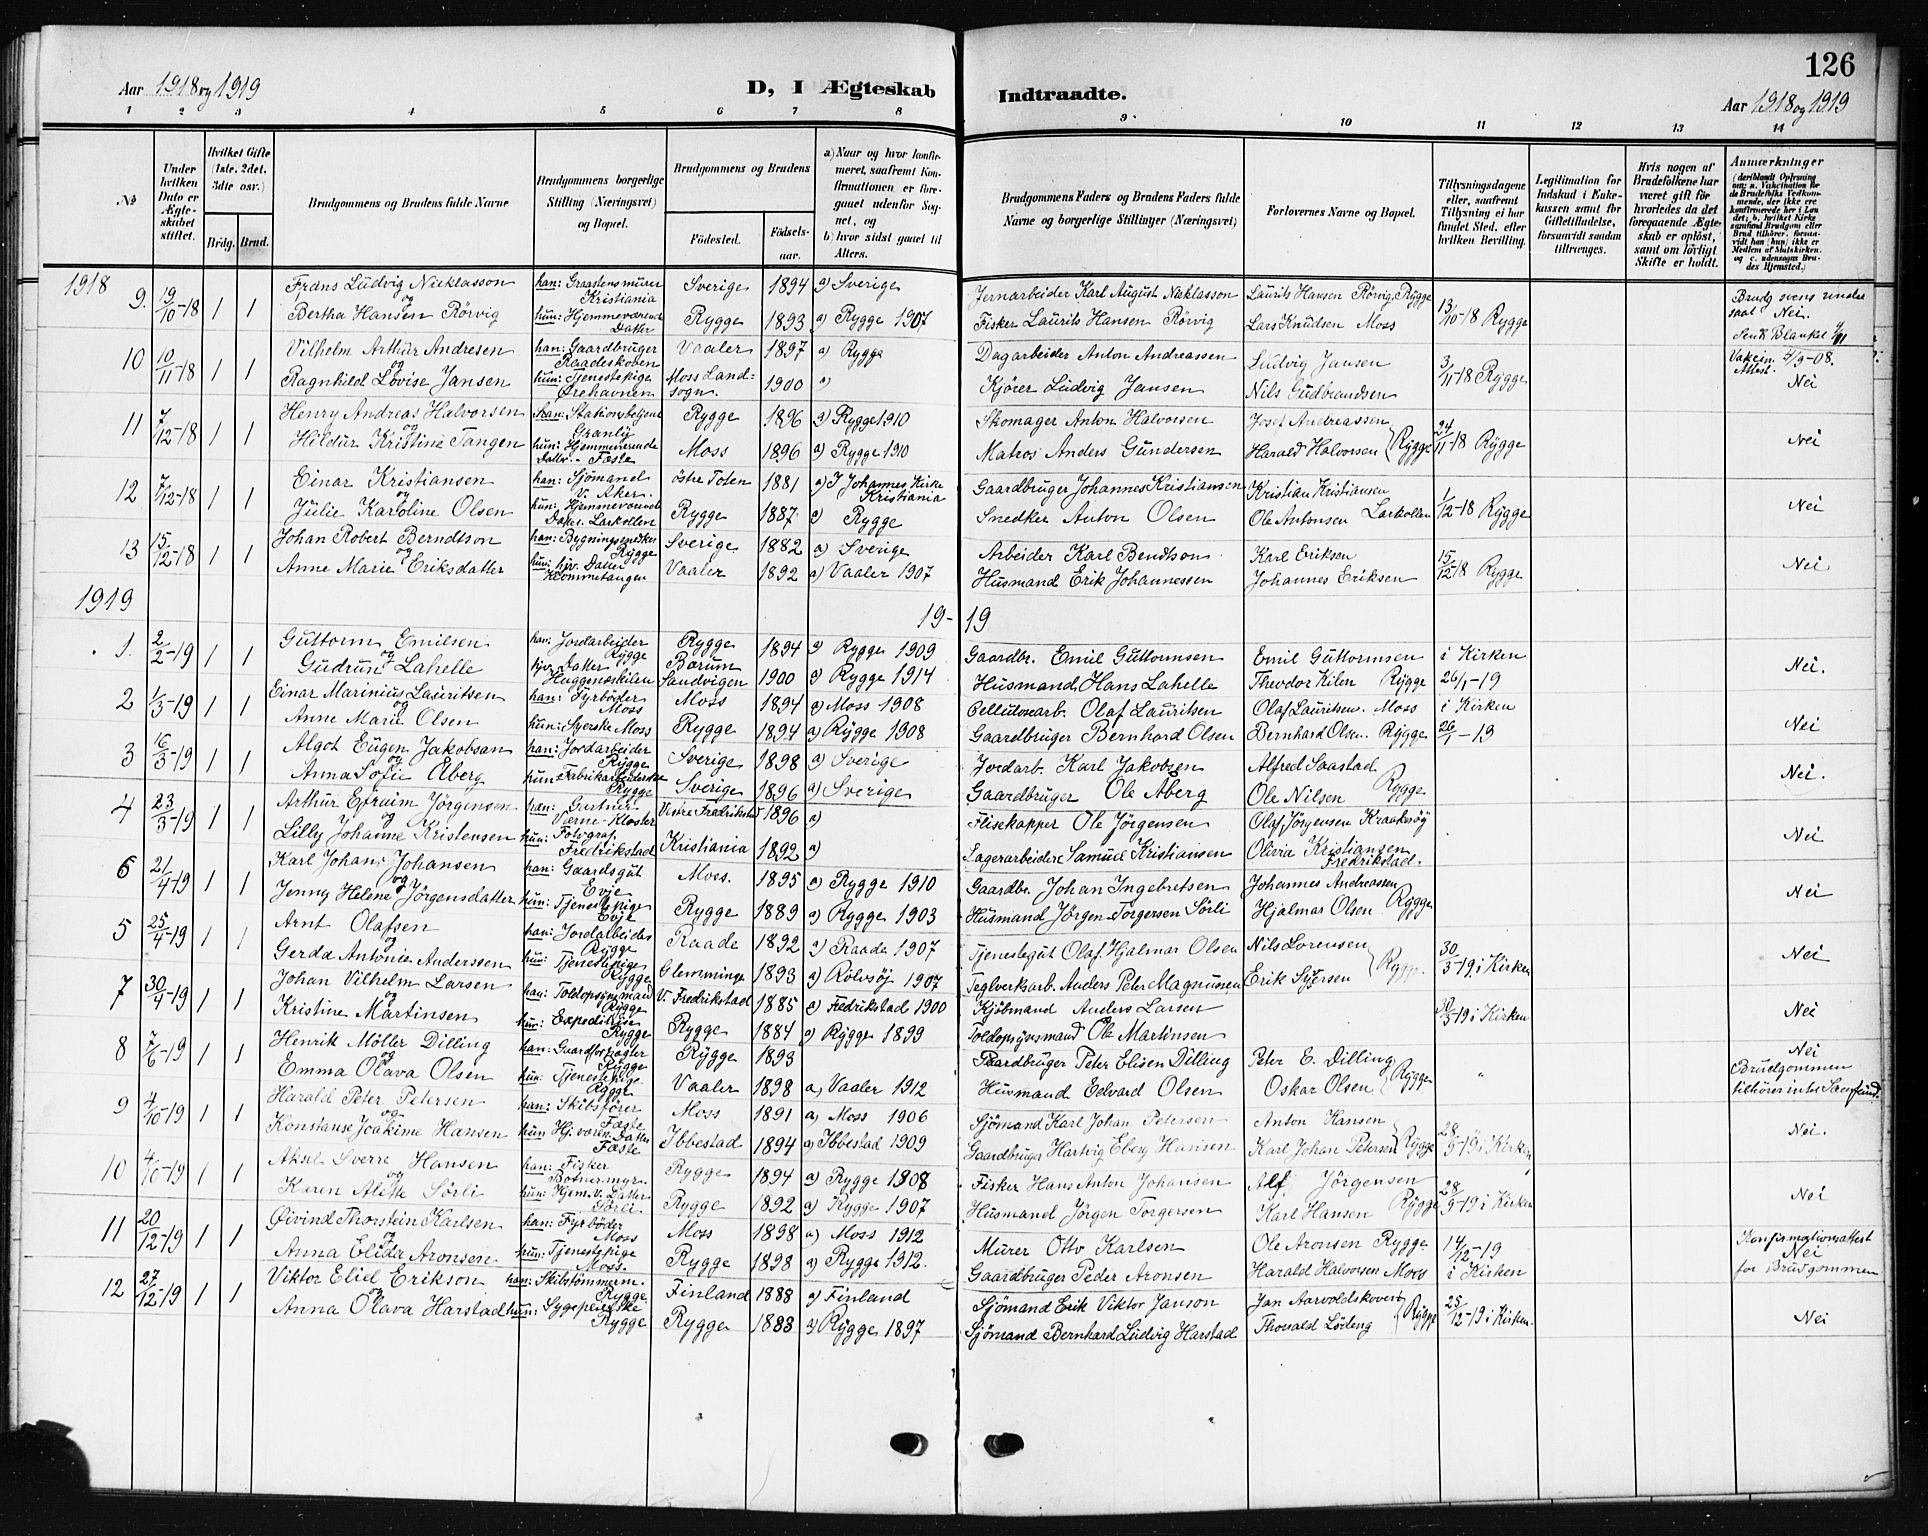 126
Aar 1918 og 1919
D, I Ægteskab Indtraadte.
Aar 1918 og 1919
1 2 3 4 5 6 7 8 9 10 11 12 13 14
No
Under hvilken Dato er Ægteskabet stiftet.
Hvilket Gifte (1ste, 2det, 3die osv.)
Brdg. Brud.
Brudgommens og Brudens fulde Navne
Brudgommens borgerlige Stilling (Næringsvei) og Bopæl.
Brudgommens og Brudens
Fødested. Fødselsaar.
a) Naar og hvor konfirmeret, saafremt Konfirmationen er foregaaet udenfor Sognet, og
b) hvor sidst gaaet til Alters.
Brudgommens Faders og Brudens Faders fulde Navne og borgerlige Stillinger (Næringsvei)
Forlovernes Navne og Bopæl.
Tillysningsdagene eller, saafremt Tillysning ei har fundet Sted, efter hvilken Bevilling.
Legitimation for Indskud i Enkekassen samt for Giftetilladelse, forsaavidt saadan tiltrænges.
Hvis nogen af Brudefolkene har været gift før hvorledes da det foregaaende Ægteskab er opløst, samt om lovligt Skifte er holdt.
Anmærkninger
1918
9. 19/10-18 1 1 Frans Ludvig Nicklasson og han: Graastensmurer Kristiania Sverige 1894 a) Sverige Jernarbeider Karl August Nicklasson Laurits Hansen Rörvig, Rygge 13/10-18 Rygge
Bertha Hansen Rörvig hun: Hjemmeværende Datter Rygge 1893 a) Rygge 1907 Fisker Laurits Hansen Rörvig Lars Knudsen Moss Nei.
10 10/11-18 1 1 Vilhelm Arthur Andresen og han: Gaardbruger Raadeskoben Vaaler 1897 a) Rygge Dagarbeider Anton Andreassen Ludvig Jansen 3/11-18 Rygge Attest.
Ragnhild Lovise Jansen hun: Tjenestepige Ørehavnen Moss Landsogn. 1900 a) Kjörer Ludvig Jansen Nils Gudbrandsen Nei
11 7/12-18 1 1 Henry Andreas Halvorsen og han: Stationsbetjent Granly Rygge 1896 a) Rygge 1910 Skomager Anton Halvorsen Josef Andreassen 24/11-18 Rygge
Hildur Kristine Tangen hun: Hjemmeværende Datter Fæste Moss 1896 a) Rygge 1910 Matros Anders Gundersen Harald Halvorsen Rygge Nei
12 7/12-18 1 1 Einar Kristiansen og han: Sjömand V. Aker. östre Toten 1881 a) I Johannes Kirke Kristiania Gaardbruger Johannes Kristiansen Kristian Kristiansen 1/12-18 Rygge
Julie Karoline Olsen hun: Hjemmeværende Datter Larkollen Rygge 1887 a) Rygge Snedker Anton Olsen Ole Antonsen Larkollen Nei
13 15/12-18 Johan Robert Berndtson og han: Bygningssnedker Rygge Sverige 1882 a) Sverige Arbeider Karl Bendtson Karl Eriksen 15/12-18 Rygge
Anne Marie Eriksdatter hun: hjv. Datter Kommetangen Vaaler 1892 a) Vaaler 1907 Husmand Erik Johannessen Johannes Eriksen Nei
1919 19-19
1. 2/2-19 1 1 Guttorm Emilsen og han: Jordarbeider Rygge Rygge 1894 a) Rygge 1909 Gaardbr. Emil Guttormsen Emil Guttormsen i Kirken
Gudrun Lahelle hjv. Datter Huggenæskilen Bærum Sandvigen 1900 a) Rygge 1914 Husmand Hans Lahelle Theodor Kilen Rygge 26/1-19 Nei.
2 1/3-19 1 1 Einar Marinius Lauritsen og han: Fyrböder Moss Moss 1894 a) Moss 1908 Cellulosearb. Olaf Lauritsen Olaf Lauritsen. Moss i Kirken
Anne Marie Olsen hun: Syerske Moss Rygge 1894 a) Rygge 1908 Gaardbruger Bernhard Olsen Bernhard Olsen. Rygge 26/1-19 Nei
3 16/3-19 1 1 Algot Eugen Jakobsen og han: Jordarbeider Rygge Sverige 1898 a) Sverige Jordarb. Karl Jakobsen Alfred Saastad
Anna Sofie Åberg hun: Fabrikarbeiderske Rygge Sverige 1896 a) Sverige Gaardbruger Ole Åberg Ole Nilsen Rygge Nei.
4 23/3-19 1 1 Arthur Efraim Jörgensen og han: Gartner Værne-Kloster Vestre Fredrikstad 1896 a) Flisekapper Ole Jörgensen Olaf Jörgensen Kraakeröy
Lilly Johanne Kristensen hun: Fotograf Fredrikstad Kristiania 1892 a) Lagerarbeider Samuel Kristiansen Olivia Kristiansen Fredrikstad. Nei
6 21/4-19 1 1 Karl Johan Johansen og han: Gaardsgut Evje Moss. 1895 a) Rygge 1910 Gaardbr. Johan Ingebretsen Johannes Andreassen
Jenny Helene Jörgensdatter hun: Tjenestepige Evje Rygge 1889 a) Rygge 1903 Husmand Jörgen Torgersen Sörli Hjalmar Olsen Rygge Nei
5 25/4-19 1 1 Arnt Olafsen og han: Jordarbeider Rygge Raade 1892 a) Raade 1907 Tjenestegut Olaf Hjalmar Olsen Nils Lorensen 30/3-19, i Kirken
Gerda Antonie Anderssen hun: Tjenestepige Rygge Glemminge 1893 a) Rolvsöj 1907 Teglverksarb. Anders Peter Magnussen Erik Syversen Rygge. Nei
7 30/4-19 1 1 Johan Vilhelm Larsen og han: Toldopsynsmand Rygge V. Fredrikstad 1885 a) Fedrikstad 1900 Kjöbmand Anders Larsen 30/3-19 i Kirken
Kristine Martinsen hun: Expeditrise Rygge Rygge 1884 a) Rygge 1899 Toldopsynsmand Ole Martinsen Nei
8 7/6-19 1 1 Henrik Möller Dilling og han: Gaardforpagter Rygge Rygge 1893 Gaardbruger Peter Elisen Dilling Peter E. Dilling Nei
Emma Olava Olsen hun: Tjenestepige Rygge Vaaler 1898 a) Vaaler 1912 Husmand Edvard Olsen Oskar Olsen Rygge " Brudgommen tilhörer intet Samfund.
9 4/10-19 1 1 Harald Peter Petersen og han: Skibsförer Fæste Moss 1891 a) Moss 1906 Sjömand Karl Johan Petersen Anton Hansen 28/9-19 i Kirken
Konstanse Joakime Hansen hun: Hj. væren. Datter Fæste Ibbestad 1894 a) Ibbestad 1909 Gaardbruger Hartvig Eberg Hansen Karl Johan Petersen Rygge Nei.
10 4/10-19 1 1 Aksel Sverre Hansen og han: Fisker Botnermyr. Rygge 1894 a) Rygge 1908 Fisker Hans Anton Johansen Alf Jörgensen 28/9-19 i Kirken
Karen Alette Sörli hun: Hjem. v. Datter Sörli Rygge 1892 a) Rygge 1907 Husmand Jörgen Torgersen Karl Hansen Rygge Nei
11 20/12-19 1 1 Øivind Thorstein Karlsen og han: Fyrböder Moss Moss 1898 a) Moss 1912 Murer Otto Karlsen Ole Aronsen Rygge 14/12-19 Konfirmationsattest
Anna Elida Aronsen hun: Tjenestepige Moss. Rygge 1898 a) Rygge 1912. Gaardbruger Peder Aronsen Harald Halvorsen Moss i Kirken Nei for Brudgommen
12 27/12-19 1 1 Viktor Eliel Erikson og han: Skibstömmerm. Rygge Finland 1888 a) Finland Sjömand Erik Viktor Janson 25/12-19 i Kirken.
Anna Olava Harstad hun: Sygepleierske Rygge Rygge 1883 a) Rygge 1897 Sjömand Bernhard Ludvig Harstad Thorvald Lödeng Rygge Nei